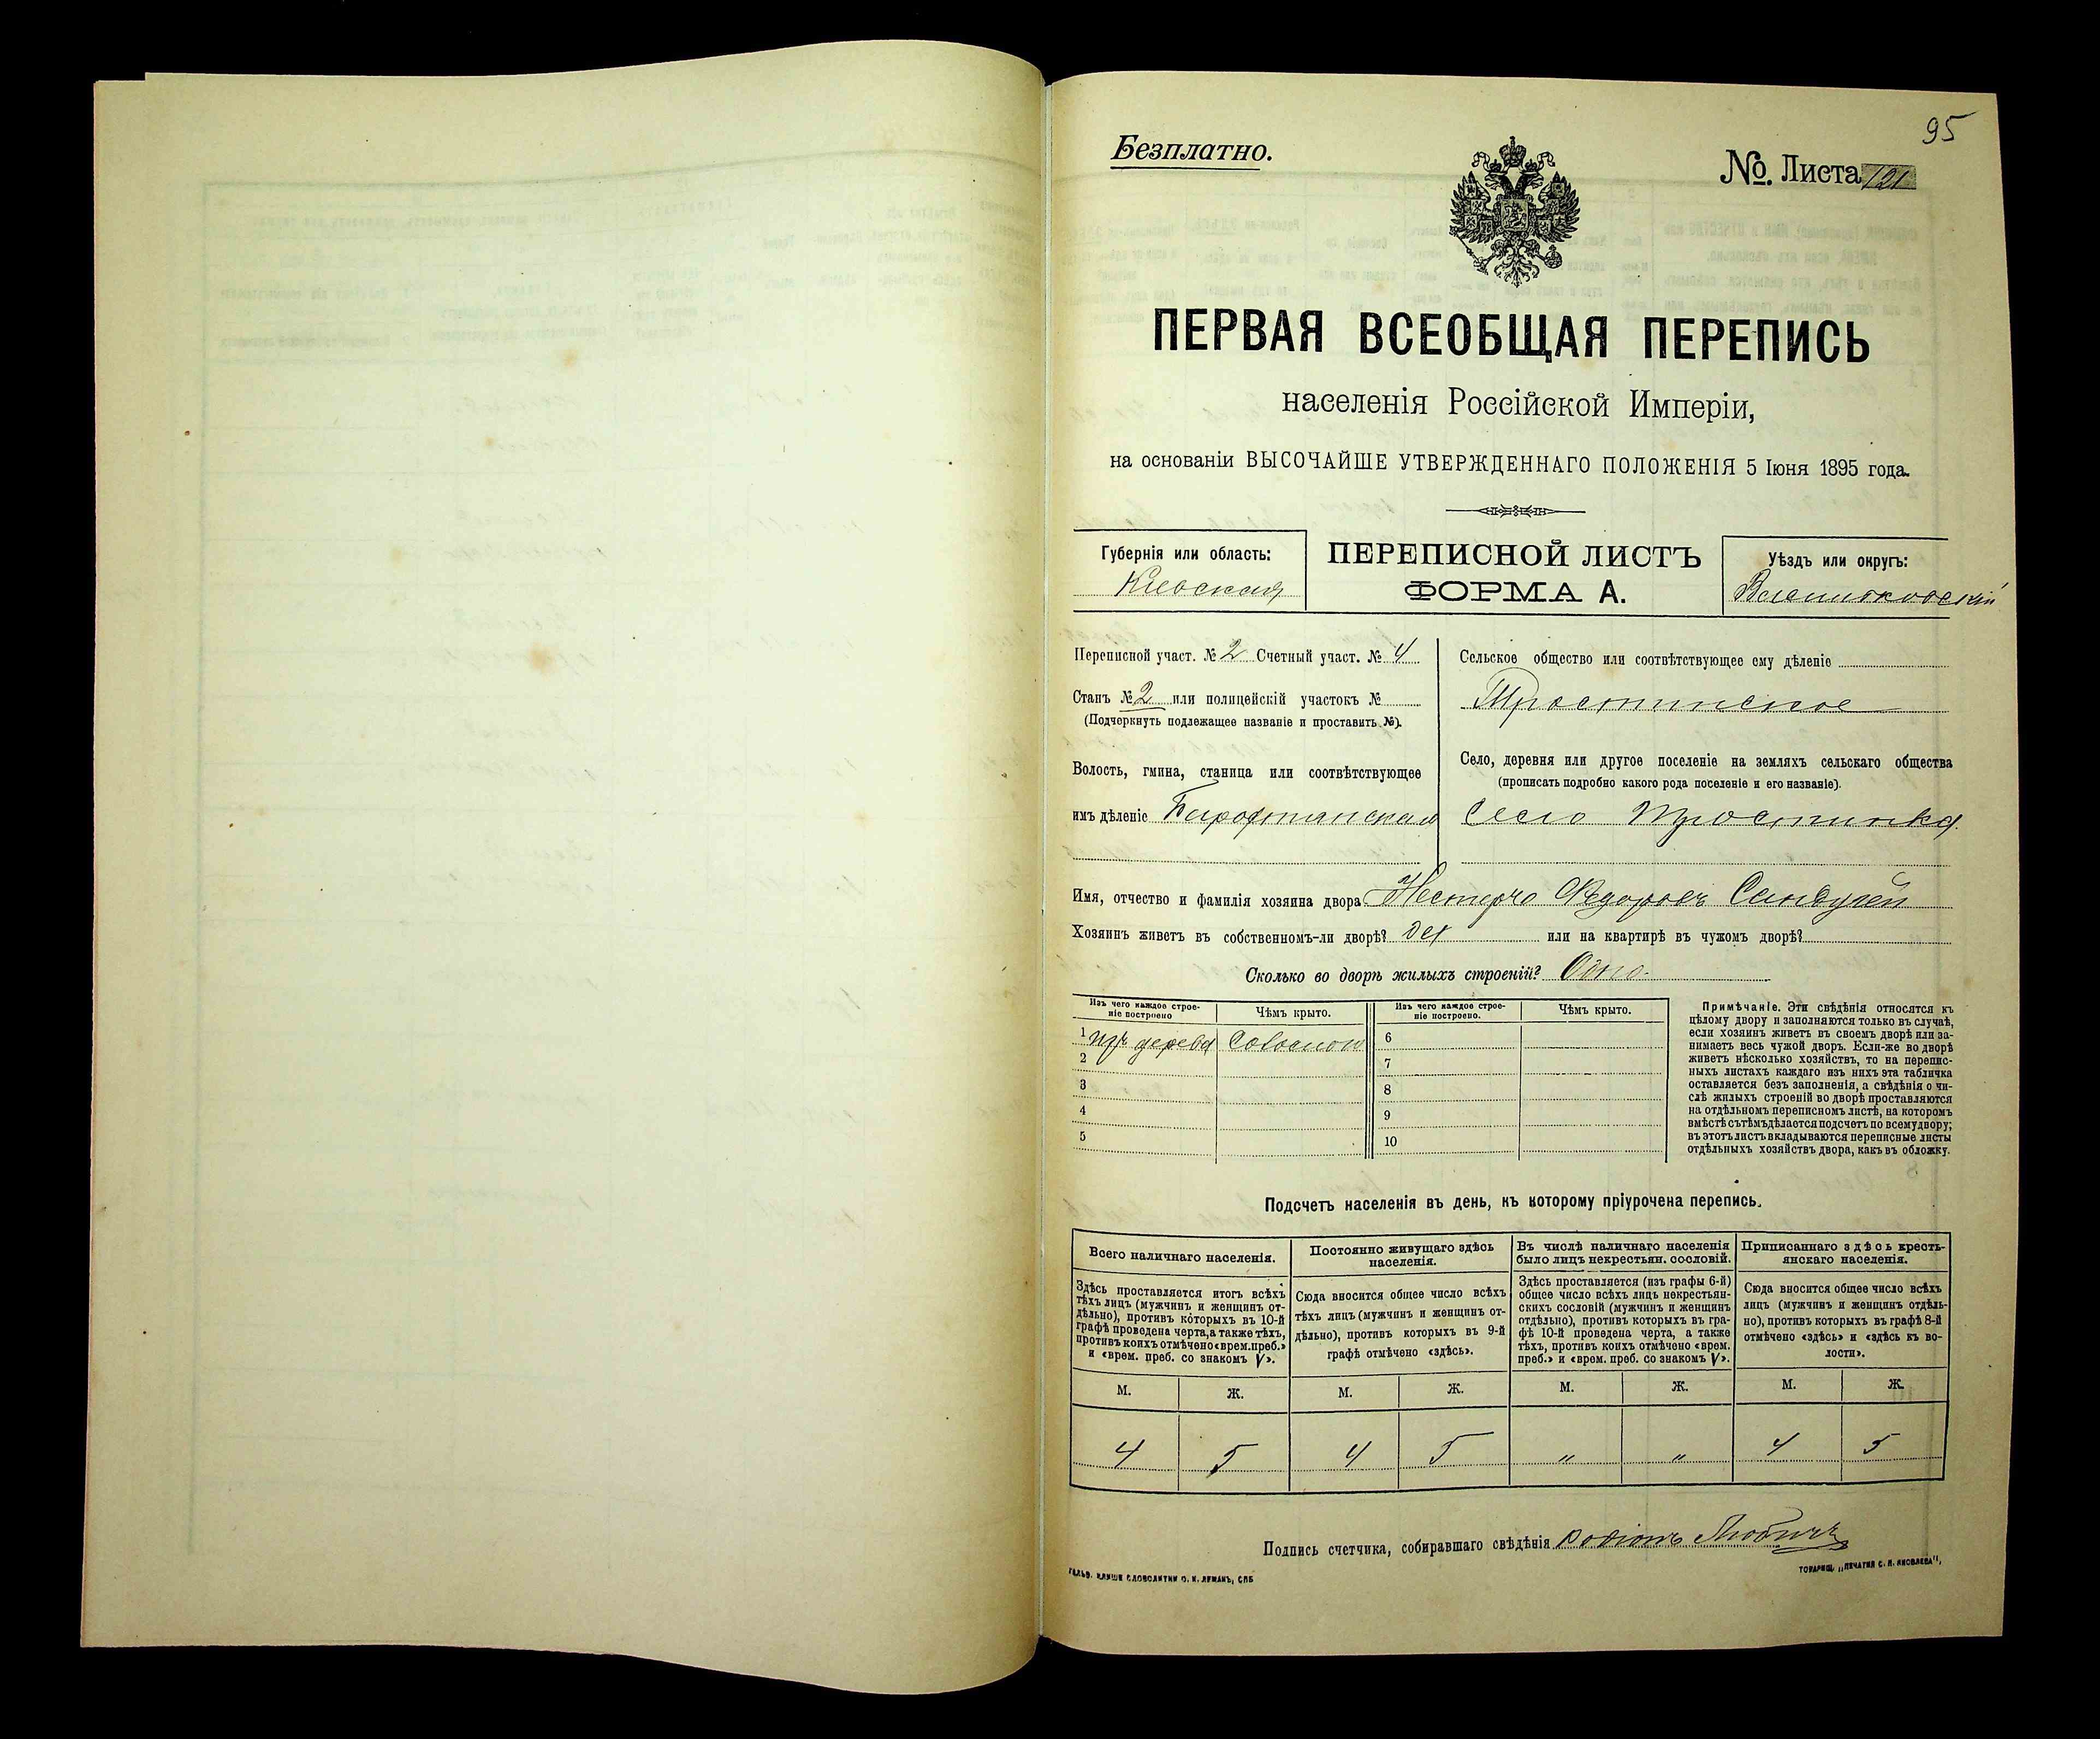 95
Безплатно.
№. Листа 121
ПЕРВАЯ ВСЕОБЩАЯ ПЕРЕПИСЬ
населенія Россійской Имперіи,
на основаніи ВЫСОЧАЙШЕ УТВЕРЖДЕННАГО ПОЛОЖЕНІЯ 5 Іюня 1895 года.
Губернія или область:
Кіевская
ПЕРЕПИСНОЙ ЛИСТЪ
ФОРМА А.
Уѣздъ или округъ:
Васильковскій
Переписной участ. № 2 Счетный участ. № 4
Станъ № 2 или полицейскій участокъ №
(Подчеркнуть подлежащее названіе и проставить №).
Волость, гмина, станица или соотвѣтствующее
имъ дѣленіе
Сельское общество или соотвѣтствующее ему дѣленіе
Тростинское
Село, деревня или другое поселеніе на земляхъ сельскаго общества
(прописать подробно какого рода поселеніе и его названіе).
Село Тростинка
Имя, отчество и фамилія хозяина двора Ѳедоровъ
Хозяинъ живетъ въ собственномъ-ли дворѣ? Да или на квартирѣ въ чужомъ дворѣ?
Сколько во дворѣ жилыхъ строеній? Одно.
Изъ чего каждое строе-
ніе построено
Чѣмъ крыто.
Изъ чего каждое строе-
ніе построено.
Чѣмъ крыто.
1 изъ дерева Соломою 6
2 7
3 8
4 9
5 10
Примѣчаніе. Эти свѣдѣнія относятся къ
цѣлому двору и заполняются только въ случаѣ,
если хозяинъ живетъ въ своемъ дворѣ или за-
нимаетъ весь чужой дворъ. Если-же во дворѣ
живетъ нѣсколько хозяйствъ, то на перепис-
ныхъ листахъ каждаго изъ нихъ эта табличка
оставляется безъ заполненія, а свѣдѣнія о чи-
слѣ жилыхъ строеній во дворѣ проставляются
на отдѣльномъ переписномъ листѣ, на которомъ
вмѣстѣ съ тѣмъ дѣлается подсчетъ по всему двору;
въ этотъ листъ вкладываются переписные листы
отдѣльныхъ хозяйствъ двора, какъ въ обложку.
Подсчетъ населенія въ день, къ которому пріурочена перепись.
Всего наличнаго населенія.
Здѣсь проставляется итогъ всѣхъ
тѣхъ лицъ (мужчинъ и женщинъ от-
дѣльно), противъ которыхъ въ 10-й
графѣ проведена черта, а также тѣхъ,
противъ коихъ отмѣчено «врем. преб.»
и «врем. преб. со знакомъ V».
Постоянно живущаго здѣсь
населенія.
Сюда вносится общее число всѣхъ
тѣхъ лицъ (мужчинъ и женщинъ от-
дѣльно), противъ которыхъ въ 9-й
графѣ отмѣчено «здѣсь».
Въ числѣ наличнаго населенія
было лицъ некрестьян. сословій.
Здѣсь проставляется (изъ графы 6-й)
общее число всѣхъ лицъ некрестьян-
скихъ сословій (мужчинъ и женщинъ
отдѣльно), противъ которыхъ въ гра-
фѣ 10-й проведена черта, а также
тѣхъ, противъ коихъ отмѣчено «врем.
преб.» и «врем. преб. со знакомъ V».
Приписаннаго здѣсь кресть-
янскаго населенія.
Сюда вносится общее число всѣхъ
лицъ (мужчинъ и женщинъ отдѣль-
но), противъ которыхъ въ графѣ 8-й
отмѣчено «здѣсь» и «здѣсь къ во-
лости».
М. Ж. М. Ж. М. Ж. М. Ж.
4 5 4 5 „ „ 4 5
Подпись счетчика, собиравшаго свѣдѣнія Родіонъ
ТОВАРИЩ. „ПЕЧАТНЯ С. П. ЯКОВЛЕВА",